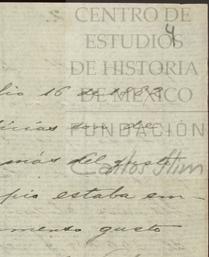 CENTRO DE
ESTUDIOS
DE HISTORIA
DE MÉXICO
FUNDACIÓN
Carlos Slim
4
lio 16 de 1883
licias son de
más del gusto
pio estaba em-
mento gusto